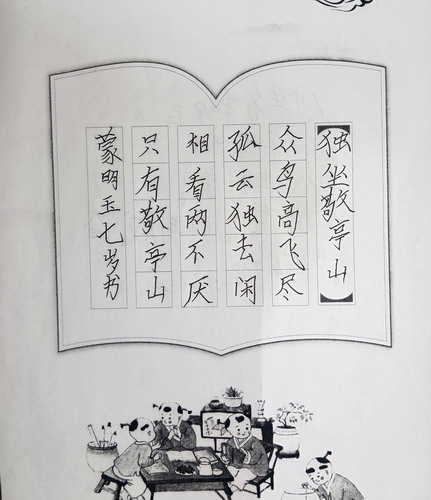 独坐敬亭山
众鸟高飞尽
孤云独去闲
相看两不厌
只有敬亭山
蒙明玉七岁书